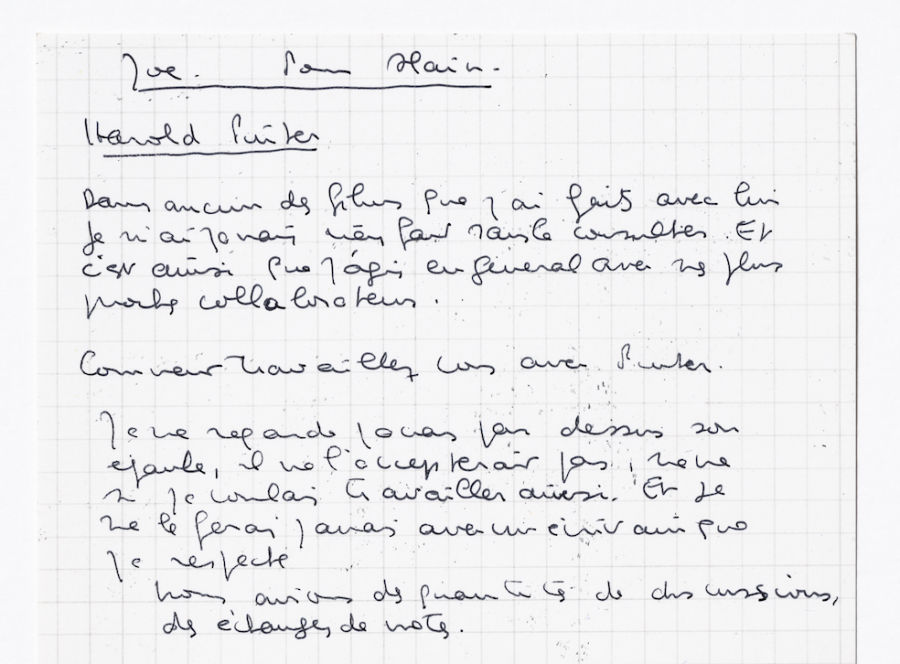 Joe. Pour Alain.
Harold Pinter
Dans aucun des films que j'ai faits avec lui
Je n'ai jamais rien fait sans le consulter. Et
c'est ainsi que j'agis en general avec mes plus
proches collaborateurs.
Comment travaillez vous avec Pinter.
Je ne regarde jamais par dessus son
épaule, il ne l'accepterait pas, même
si je voulais travailler ainsi. Et je
ne le ferai jamais avec un écrivain que
je respecte
Nous avions des quantités de discussions,
des échanges de notes.